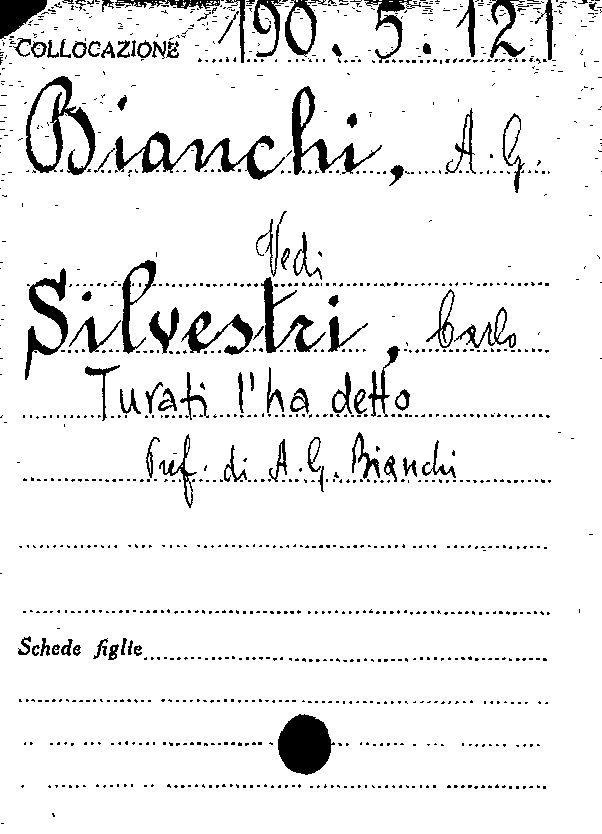 COLLOCAZIONE 190.5.121
Bianchi, A.G.
Vedi
Silvestri, Carlo
Turati l'ha detto
Pref. di A.G. Bianchi
Schede figlie